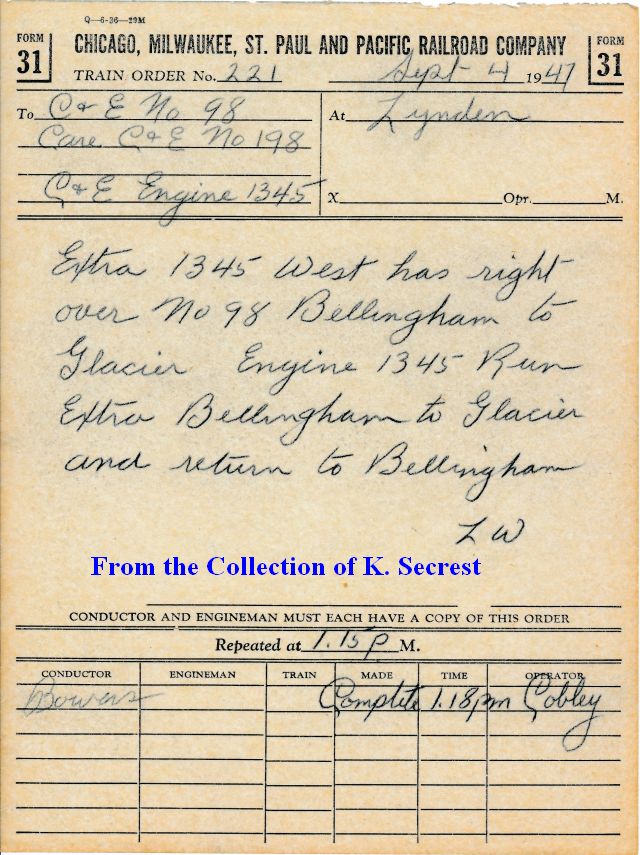 Q—6-36—29M
FORM 31
CHICAGO, MILWAUKEE, ST. PAUL AND PACIFIC RAILROAD COMPANY
FORM 31
TRAIN ORDER No. 221 Sept 4 1947
To C & E No 98 At Lynden
Care C & E No 198
C & E Engine 1345 X Opr. M.
Extra 1345 West has right
over No 98 Bellingham to
Glacier Engine 1345 Run
Extra Bellingham to Glacier
and return to Bellingham
L W
From the Collection of K. Secrest
CONDUCTOR AND ENGINEMAN MUST EACH HAVE A COPY OF THIS ORDER
Repeated at 1.15 P M.
CONDUCTOR ENGINEMAN TRAIN MADE TIME OPERATOR
Bowers Complete 1.18pm Cobley